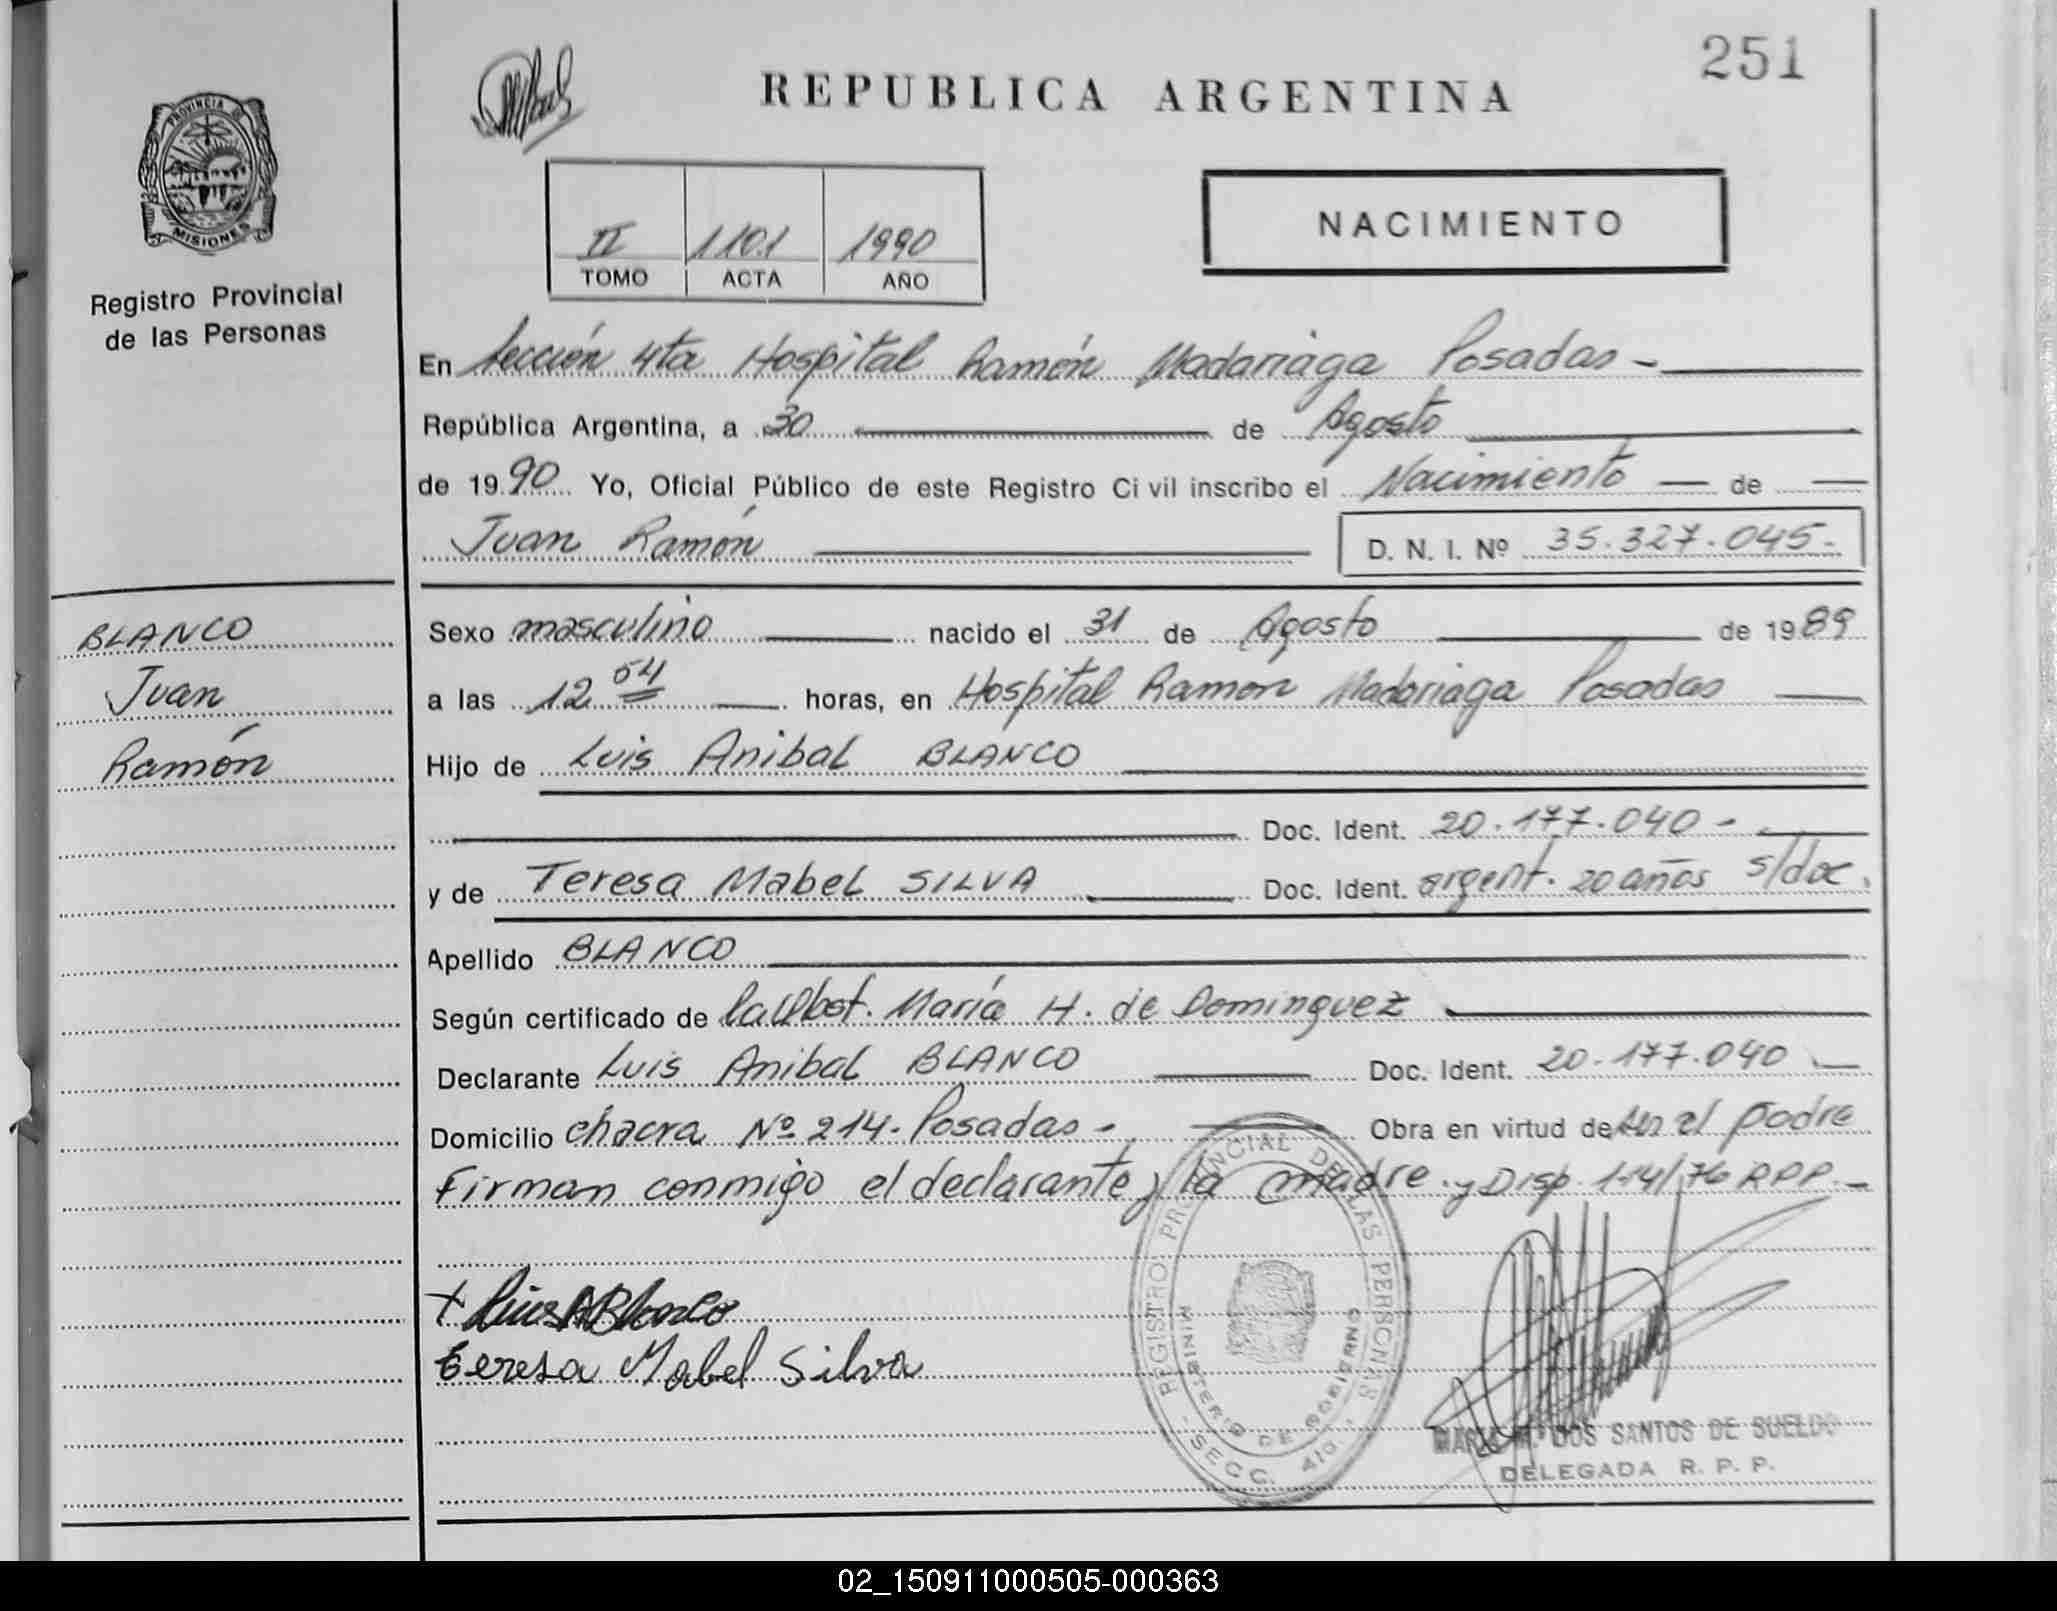 251
REPUBLICA ARGENTINA
PROVINCIA DE
MISIONES
Registro Provincial
de las Personas
II 1101 1990
TOMO ACTA AÑO
NACIMIENTO
En Sección 4ta Hospital Ramón Madariaga Posadas -
República Argentina, a 30 de Agosto
de 1990 Yo, Oficial Público de este Registro Civil inscribo el Nacimiento de
Juan Ramón D. N. I. Nº 35.327.045.-
BLANCO
Juan
Ramón
Sexo masculino nacido el 31 de Agosto de 1989
a las 12 54 horas, en Hospital Ramon Madariaga Posadas
Hijo de Luis Anibal BLANCO
Doc. Ident. 20.177.040 -
y de Teresa Mabel SILVA Doc. Ident. argent. 20 años s/doc.
Apellido BLANCO
Según certificado de la Obst. María H. de Dominguez
Declarante Luis Anibal BLANCO Doc. Ident. 20.177.040
Domicilio chacra Nº 214. Posadas - Obra en virtud de ser el padre
Firman conmigo el declarante y la madre. y Disp. 114/76 RPP. -
+ Luis A Blanco
teresa Mabel Silva
REGISTRO PROVINCIAL DE LAS PERSONAS
MINISTERIO DE GOBIERNO
- SECC. 4ta. -
MARIA M. DOS SANTOS DE SUELDO
DELEGADA R. P. P.
02_150911000505-000363